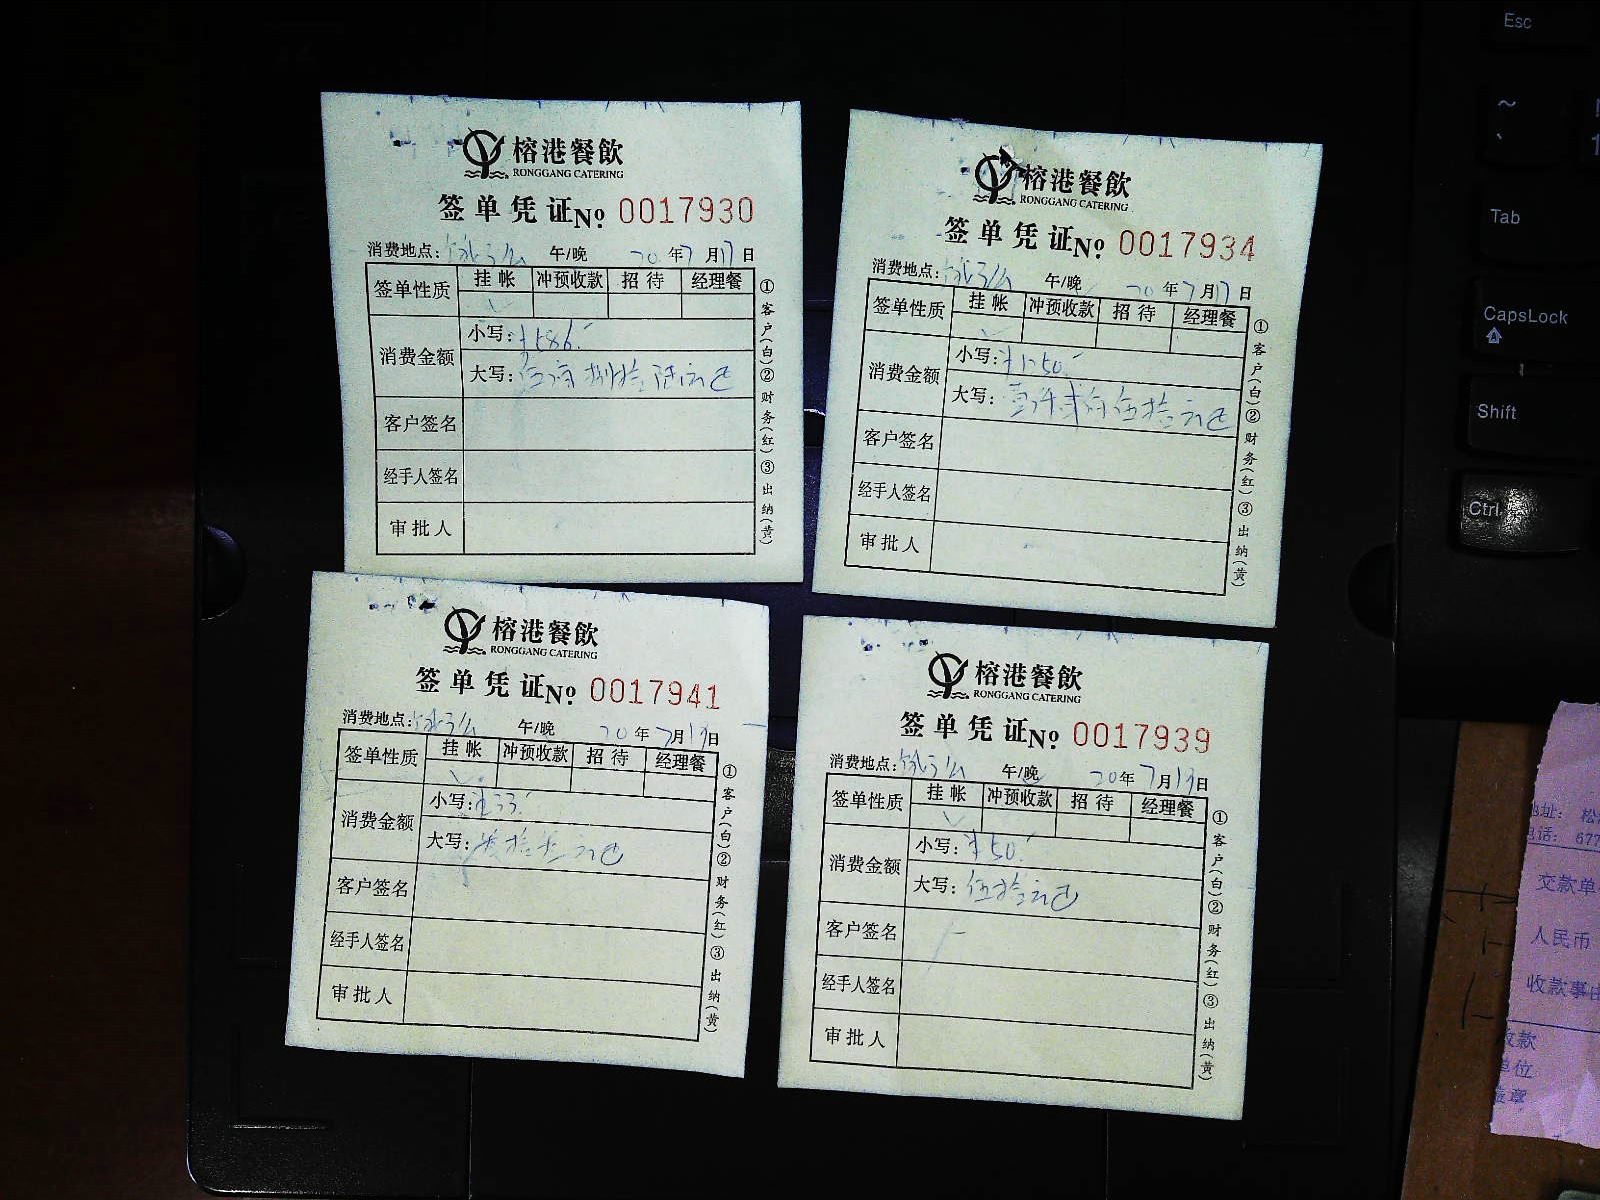 榕港餐飲
RONGGANG CATERING
签单凭证№ 0017930
消费地点: 午/晚 20年7月17日
签单性质 挂帐 冲预收款 招待 经理餐
消费金额
小写:¥586.-
大写:伍佰捌拾陆元正
客户签名
经手人签名
审批人
①客户(白)②财务(红)③出纳(黄)
榕港餐飲
RONGGANG CATERING
签单凭证№ 0017934
消费地点: 午/晚 20年7月17日
签单性质 挂帐 冲预收款 招待 经理餐
消费金额
小写:¥1250.-
大写:壹仟贰佰伍拾元正
客户签名
经手人签名
审批人
①客户(白)②财务(红)③出纳(黄)
榕港餐飲
RONGGANG CATERING
签单凭证№ 0017941
消费地点: 午/晚 20年7月19日
签单性质 挂帐 冲预收款 招待 经理餐
消费金额
小写:
大写:
客户签名
经手人签名
审批人
①客户(白)②财务(红)③出纳(黄)
榕港餐飲
RONGGANG CATERING
签单凭证№ 0017939
消费地点: 午/晚 20年7月19日
签单性质 挂帐 冲预收款 招待 经理餐
消费金额
小写:¥50.-
大写:伍拾元正
客户签名
经手人签名
审批人
①客户(白)②财务(红)③出纳(黄)
Esc
~
Tab
CapsLock
Shift
Ctrl
地址: 松
电话: 677
交款单
人民币
收款事由
收款
单位
盖章